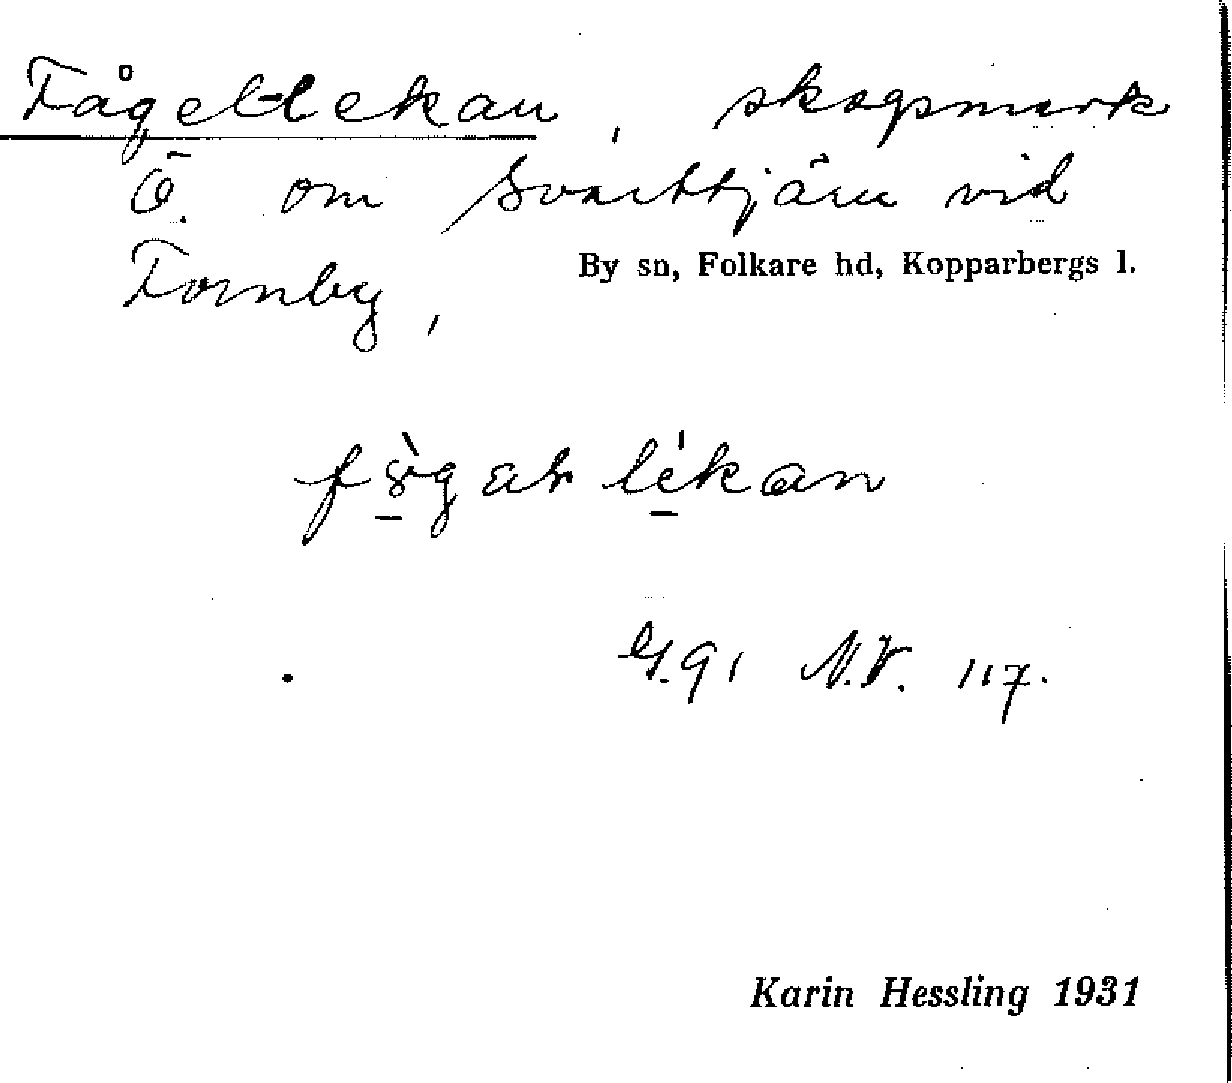 Fågel-lekan, skogsmark
Ö. om Svarttjärn vid
Fornby,
By sn, Folkare hd, Kopparbergs l.
lekan
G. 91 N.V. 117.
Karin Hessling 1931